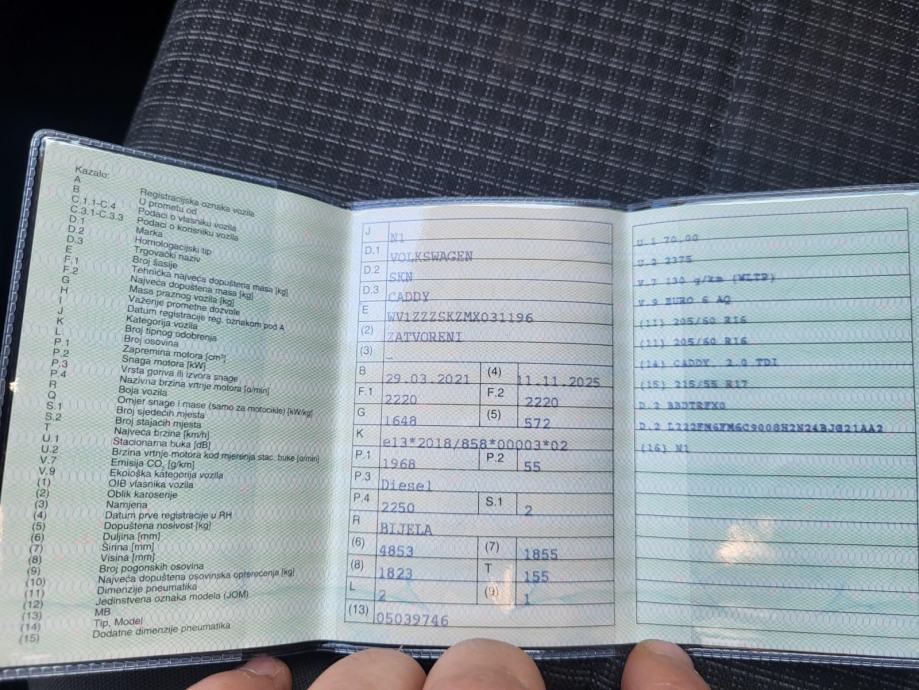 Kazalo:
A Registracijska oznaka vozila
B U prometu od
C.1.1-C.4 Podaci o vlasniku vozila
C.3.1-C.3.3 Podaci o korisniku vozila
D.1 Marka
D.2 Homologacijski tip
D.3 Trgovački naziv
E Broj šasije
F.1 Tehnička najveća dopuštena masa [kg]
F.2 Najveća dopuštena masa [kg]
G Masa praznog vozila [kg]
H Važenje prometne dozvole
I Datum registracije reg. oznakom pod A
J Kategorija vozila
K Broj tipnog odobrenja
L Broj osovina
P.1 Zapremina motora [cm³]
P.2 Snaga motora [kW]
P.3 Vrsta goriva ili izvora snage
P.4 Nazivna brzina vrtnje motora [o/min]
R Boja vozila
Q Omjer snage i mase (samo za motocikle) [kW/kg]
S.1 Broj sjedećih mjesta
S.2 Broj stajaćih mjesta
T Najveća brzina [km/h]
U.1 Stacionarna buka [dB]
U.2 Brzina vrtnje motora kod mjerenja stac. buke [o/min]
V.7 Emisija CO₂ [g/km]
V.9 Ekološka kategorija vozila
(1) OIB vlasnika vozila
(2) Oblik karoserije
(3) Namjena
(4) Datum prve registracije u RH
(5) Dopuštena nosivost [kg]
(6) Duljina [mm]
(7) Širina [mm]
(8) Visina [mm]
(9) Broj pogonskih osovina
(10) Najveća dopuštena osovinska opterećenja [kg]
(11) Dimenzije pneumatika
(12) Jedinstvena oznaka modela (JOM)
(13) MB
(14) Tip, Model
(15) Dodatne dimenzije pneumatika
J N1
D.1 VOLKSWAGEN
D.2 SKN
D.3 CADDY
E WV1ZZZSKZMX031196
(2) ZATVORENI
(3) –
B 29.03.2021 (4) 11.11.2025
F.1 2220 F.2 2220
G 1648 (5) 572
K e13*2018/858*00003*02
P.1 1968 P.2 55
P.3 Diesel
P.4 2250 S.1 2
R BIJELA
(6) 4853 (7) 1855
(8) 1823 T 155
L 2 (9) 1
(13) 05039746
U.1 70,00
U.2 2375
V.7 130 g/km (WLTP)
V.9 EURO 6 AQ
(11) 205/60 R16
(11) 205/60 R16
(14) CADDY, 2.0 TDI
(15) 215/55 R17
D.2
D.2
(16) N1